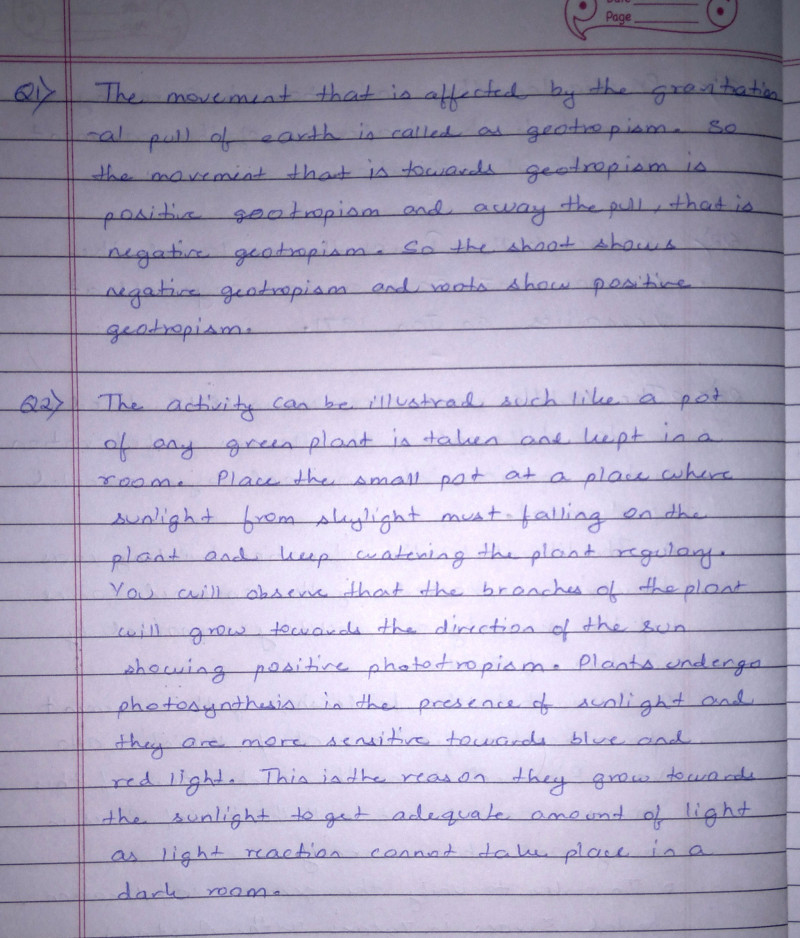 Page
Q1) The movement that is affected by the gravitation
-al pull of earth is called as geotropism. So
the movement that is towards geotropism is
positive geotropism and away the pull, that is
negative geotropism. So the shoot shows
negative geotropism and roots show positive
geotropism.
Q2) The activity can be illustrad such like a pot
of any green plant is taken and kept in a
room. Place the small pot at a place where
sunlight from skylight must falling on the
plant and keep watering the plant regulary.
You will observe that the branches of the plant
will grow towards the direction of the sun
showing positive phototropism. Plants undergo
photosynthesis in the presence of sunlight and
they are more sensitive towards blue and
red light. This is the reason they grow towards
the sunlight to get adequate amount of light
as light reaction cannot take place in a
dark room.